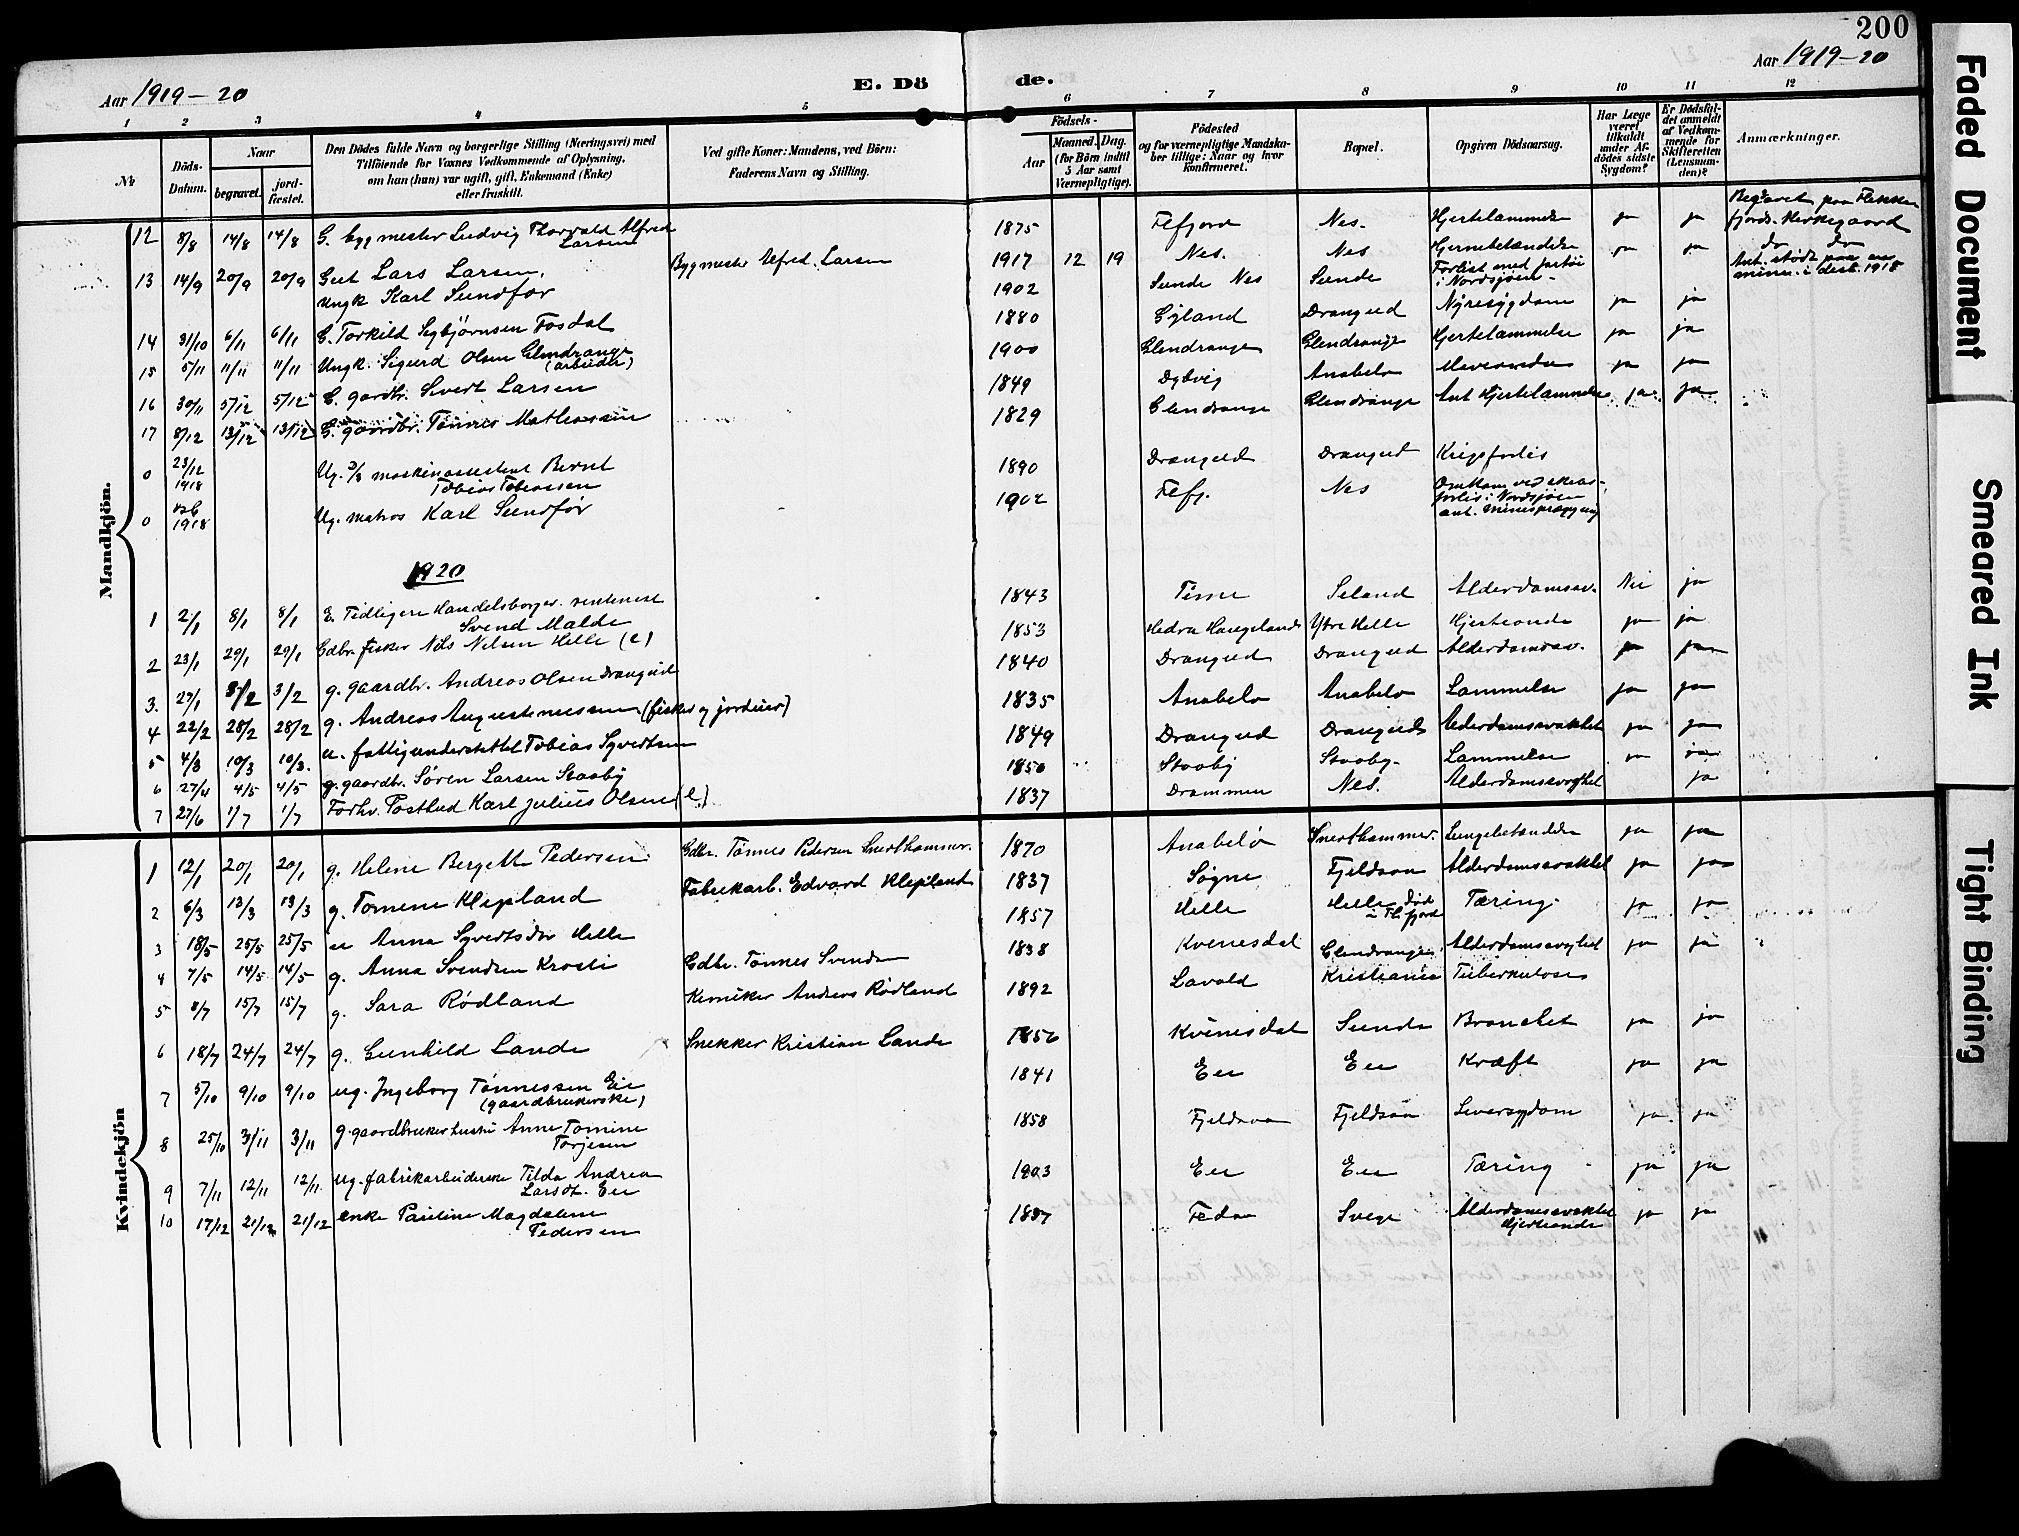 200
Aar 1919-20
E. Dö de.
Aar 1919-20
1 2 3 4 5 6 7 8 9 10 11 12
No
Döds-Datum.
Naar
begravet.
jord-fæstet.
Den Dödes fulde Navn og borgerlige Stilling (Næringsvei) med
Tilföiende for Voxnes Vedkommende af Oplysning,
om han (hun) var ugift, gift, Enkemand (Enke)
eller fraskilt.
Ved gifte Koner: Mandens, ved Börn:
Faderens Navn og Stilling.
Födsels-
Aar
Maaned. Dag.
(for Börn indtil
5 Aar samt
Værnepligtige).
Födested
og for værnepligtige Mandska-
ber tillige: Naar og hvor
konfirmeret.
Bopæl.
Opgiven Dödsaarsag.
Har Læge
været
tilkaldt
under Af-
dödes sidste
Sygdom?
Er Dödsfal-
det anmeldt
af Vedkom-
mende for
Skifteretten
(Lensman-
den)?
Anmærkninger.
Mandkjön.
12 8/8 14/8 14/8 G. bygmester Ludvig Thorvald Alfred Larsen 1875 Flefjord Nes. Hjertelammelse ja ja Begravet paa Flekke fjords Kirkegaard
13 14/9 20/9 20/9 Gut Lars Larsen. Bygmester Alfred Larsen 1917 12 19 Nes. Nes Hjernebetændelse ja ja do do
Ungk Karl Sundfør 1902 Sunde Nes Sunde Forlist med fartøi i Nordsjøen - Ant. stødt paa en mine i desb. 1918
14 31/10 6/11 6/11 G. Torkild Sigbjørnsen Fosdal 1880 Gyland Drangeid Nyresygdom ja ja
15 5/11 11/11 11/11 Ungk. Sigurd Olsen Glendrange (arbeider) 1900 Glendrange Glendrange Hjertelammelse ja ja
16 30/11 5/12 5/12 G. gardbr. Sivert Larsen 1849 Dybvig Anabelø Mavesaar ja ja
17 8/12 13/12 13/12 G. gaardbr. Tønnes Mathiassen 1829 Glendrange Glendrange Ant Hjertelammelse ja ja
0 23/12 1918 Ug. maskinassistent Bernt Tobias Tobiassen 1890 Drangeid Drangeid Krigsforlis
0 1918 Ug. matros Karl Sundfør 1902 Flefj. Nes Omkom ved forlis i Nordsjøen ant. minesprægning
1920
1 2/1 8/1 8/1 E. Tidligere Handelsborger. rentenist Svend Malde 1843 Time Seland Alderdomssv. Nei ja
2 23/1 29/1 29/1 Gdbr. fisker Nils Nilsen Helle (e) 1853 Hedra Haugeland Ytre Helle Hjerteonde ja ja
3. 27/1 3/2 3/2 g. gaardbr. Andreas Olsen Drangeid 1840 Drangeid Drangeid Alderdomssv. ja ja
4 22/2 28/2 28/2 g. Andreas Augustinussen (fisker og jordeier) 1835 Anabelø Anabelø Lammelse ja ja
5 4/3 10/3 10/3. u. fattigunderstøttet Tobias Syvertsen 1849 Drangeid Drangeid Alderdomssvakhet ja ja
6 27/4 4/5 4/5 g. gaardbr. Søren Larsen Stooby 1850 Stooby Stooby. Lammelse
7 27/6 1/7 1/7 Forhv. Postbud Karl Julius Olsen (e) 1837 Drammen Nes. Alderdomssvaghet ja
Kvindekjön
1 12/1 20/1 20/1 g. Helene Bergette Pedersen Gdbr. Tønnes Pedersen Snerthammer. 1870 Anabelø Snerthammer. Lungebetændelse ja ja
2 6/3 13/3 13/3 g. Tomine Klepland Fabrikarb. Edvard Klepland 1837 Søgne Fjeldsaa Alderdomssvakhet ja ja
3 18/5 25/5 25/5 u Anna Syvertsdtr Helle 1857 Helle Helle død i Flfjord Tæring. ja ja
4 7/5 14/5 14/5 g. Anna Svendsen Krosli Gdbr. Tønnes Svendsen 1838 Kvinesdal Glendrange Alderdomssvaghet ja ja
5 8/7 15/7 15/7 g. Sara Rødland Kemiker Andreas Rødland 1892 Lavold Kristiania Tuberkulose
6 18/7 24/7 24/7 g. Gunhild Lande Snekker Kristian Lande 1856 Kvinesdal Sunde Bronchet ja ja
7 5/10 9/10 9/10 ug. Ingeborg Tønnessen Eie (gaardbrukerske) 1841 Eie Eie Kræft ja ja
8 25/10 3/11 3/11 g. gaardbrukerhustru Anne Tomine Torjesen 1858 Fjeldsaa Fjeldsaa Leversygdom ja ja
9 7/11 12/11 12/11. ug. fabrikarbeiderske Tilda Andrea Larsdt. Eie 1903 Eie Eie Tæring ja ja
10 17/12 21/12 21/12 enke Pauline Magdalene Pedersen 1837 Fedaa Svege Alderdomssvakhet Hjerteonde ja ja
Faded Document
Smeared Ink
Tight Binding